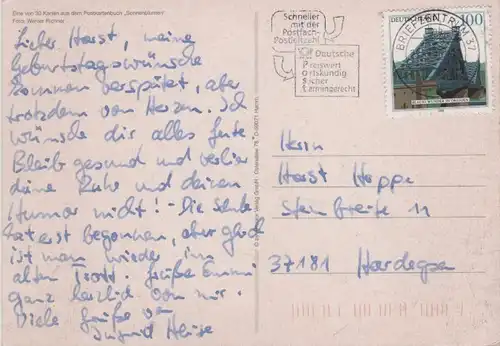 Eine von 30 Karten aus dem Postkartenbuch „Sonnenblumen“
Foto: Werner Richner
Lieber Horst, meine
Geburtstagswünsche
kommen verspätet, aber
trotzdem von Herzen. Ich
wünsche dir alles Gute
Bleib gesund und verlier
deine Ruhe und deinen
Humor nicht! - Die
hat erst begonnen, aber gleich
ist man wieder im
alten Trott. Grüße Emmi
ganz herzlich von mir.
Viele Grüße von
Ingrid
Schneller
mit der
Postfach-
Postleitzahl
Deutsche
Preiswert
Ortskundig
Sicher
Termingerecht
DEUTSCHE 100
BRIEFZENTRUM 37
BLAUES WUNDER IN DRESDEN
Herrn
Horst Hoppe
Steinbreite 11
37181 Hardegsen
Verlag GmbH · Ostenallee 78, D-59071 Hamm